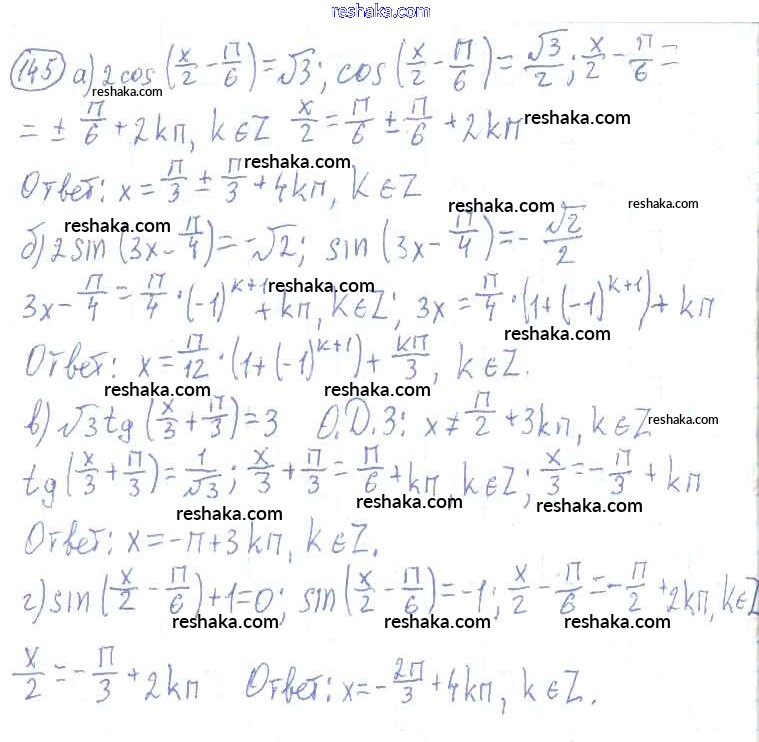 reshaka.com
145) а) 2cos(x/2 − π/6) = √3; cos(x/2 − π/6) = √3/2; x/2 − π/6 =
reshaka.com
= ± π/6 + 2kπ, k∈Z x/2 = π/6 ± π/6 + 2kπ reshaka.com
reshaka.com
Ответ: x = π/3 ± π/3 + 4kπ, k∈Z
reshaka.com reshaka.com
б) 2sin(3x − π/4) = −√2; sin(3x − π/4) = − √2/2
reshaka.com
3x − π/4 = π/4 · (−1)^(k+1) + kπ, k∈Z; 3x = π/4 · (1 + (−1)^(k+1)) + kπ
reshaka.com
Ответ: x = π/12 · (1 + (−1)^(k+1)) + kπ/3, k∈Z.
reshaka.com reshaka.com
в) √3tg(x/3 + π/3) = 3 О.Д.З: x ≠ π/2 + 3kπ, k∈Z reshaka.com
tg(x/3 + π/3) = 1/√3; x/3 + π/3 = π/6 + kπ, k∈Z; x/3 = − π/3 + kπ
reshaka.com reshaka.com
Ответ: x = −π + 3kπ, k∈Z.
reshaka.com
г) sin(x/2 − π/6) + 1 = 0; sin(x/2 − π/6) = −1; x/2 − π/6 = − π/2 + 2kπ, k∈Z
reshaka.com reshaka.com
x/2 = − π/3 + 2kπ Ответ: x = − 2π/3 + 4kπ, k∈Z.
reshaka.com